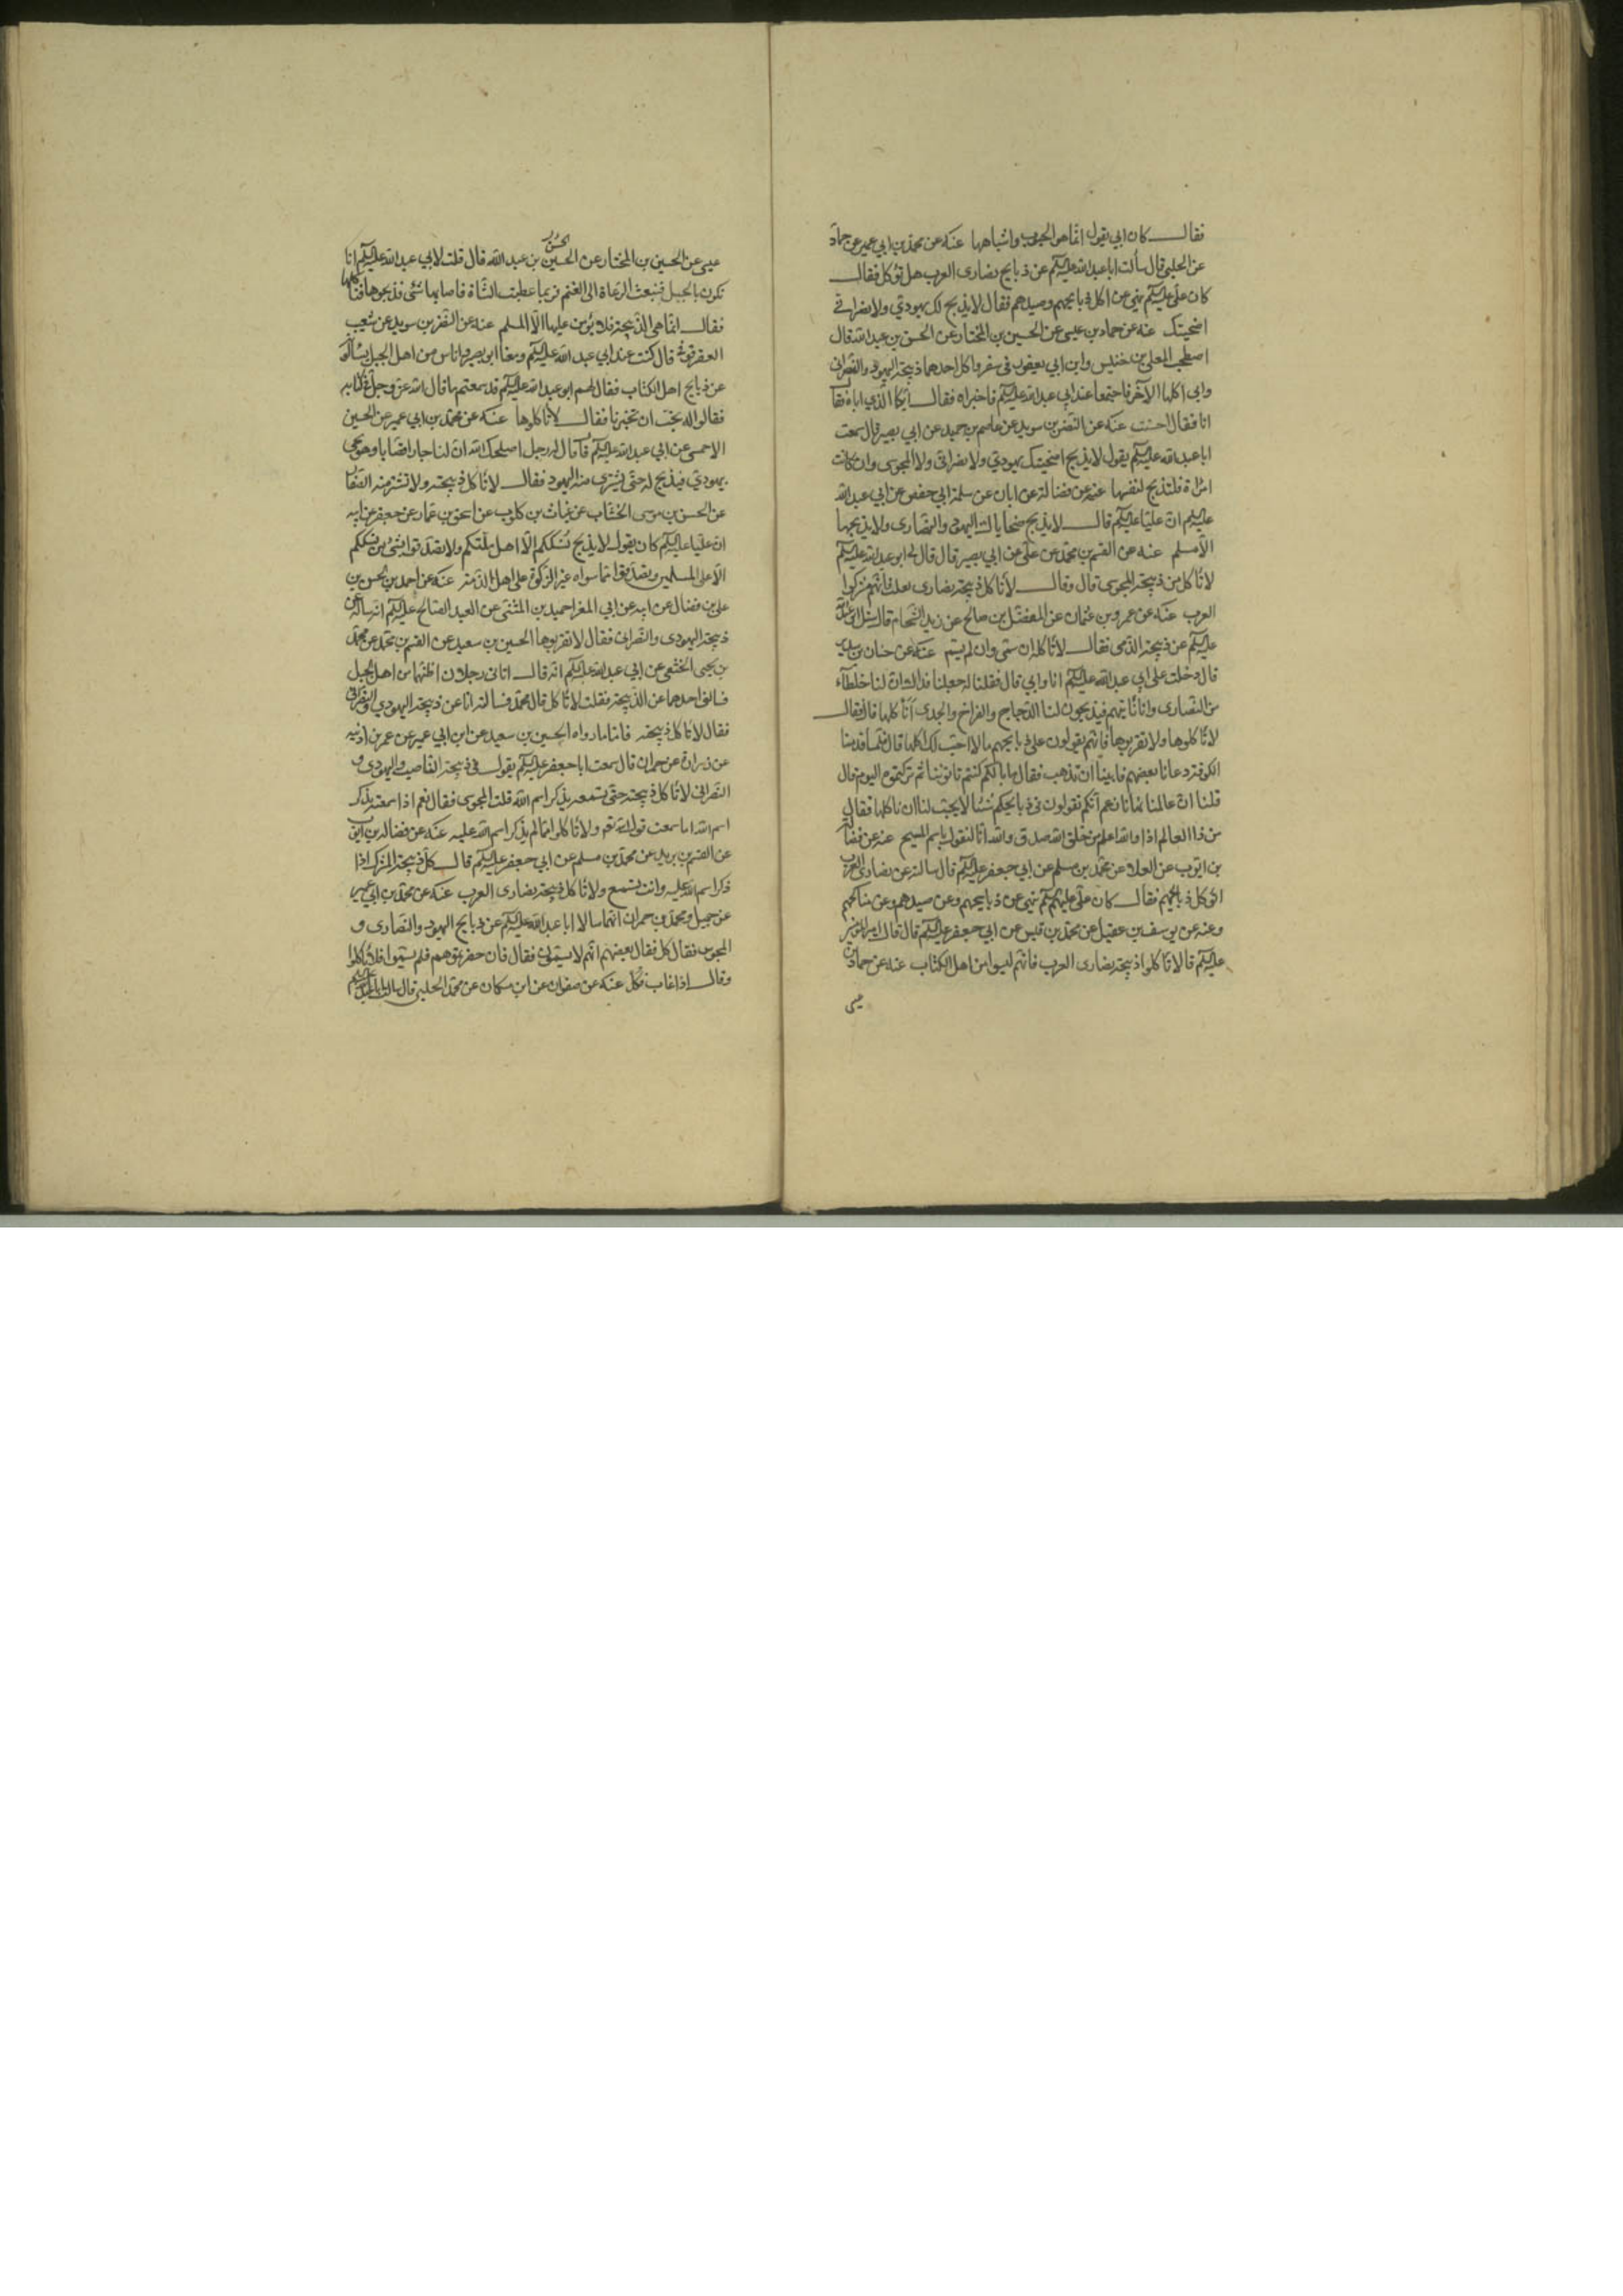 فقال كان ابي يقول انما هو الحبوب واشباهها عنه عن محمد بن ابي عمير عن حماد
عن الحلبي قال سألت ابا عبد الله عليه السلم عن ذبايح نصارى العرب هل تؤكل فقال
كان علي عليه السلم ينهى عن اكل ذبايحهم وصيدهم فقال لا يذبح لك يهودي ولا نصراني
اضحيتك عنه عن حماد بن عيسى عن الحسين بن المختار عن الحسن بن عبد الله قال
اصطحب المعلى بن خنيس وابن ابي يعفور في سفر فاكل احدهما ذبيحة اليهود والنصرانى
وابى اكلها الآخر فاجتمعا عند ابي عبد الله عليه السلم فاخبراه فقال ايكما الذي اباه فقال
انا فقال احسنت عنه عن النضر بن سويد عن عاصم بن حميد عن ابي بصير قال سمعت
ابا عبد الله عليه السلم يقول لا يذبح اضحيتك يهودي ولا نصراني ولا المجوسي وان كانت
امراة فلتذبح لنفسها عنه عن فضالة عن ابان عن سلمة ابي حفص عن ابي عبد الله
عليه السلم ان عليا عليه السلم قال لا يذبح ضحاياك اليهود والنصارى ولا يذبحها
الا مسلم عنه عن القسم بن محمد عن علي عن ابي بصير قال قال لي ابو عبد الله عليه السلم
لا تأكل من ذبيحة المجوسي قال وقال لا تأكل ذبيحة نصارى تغلب فانهم مشركوا
العرب عنه عن عمرو بن عثمان عن المفضل بن صالح عن زيد الشحام قال سئل ابو عبد الله
عليه السلم عن ذبيحة الذمي فقال لا تأكله ان سمى وان لم يسم عنه عن حنان بن سدير
قال دخلت على ابي عبد الله عليه السلم انا وابي قال فقلنا له جعلنا فداك ان لنا خلطاء
من النصارى وانا نأتيهم فيذبحون لنا الدجاج والفراخ والجدى انأكلها قال فقال
لا تأكلوها ولا تقربوها فانهم يقولون على ذبايحهم ما لا احب لك اكلها قال فلما قدمنا
الكوفة دعانا بعضهم فابينا ان نذهب فقال ما بالكم كنتم تأتوننا ثم تركتموه اليوم قال
قلنا ان عالمنا نهانا زعم انكم تقولون فى ذبايحكم شيئا لا يحب لنا ان نأكلها فقال
من ذا العالم اذا والله اعلم من خلق الله صدق والله انا لنقول باسم المسيح عنه عن فضالة
بن ايوب عن العلا عن محمد بن مسلم عن ابي جعفر عليه السلم قال سالته عن نصارى العرب
اتؤكل ذبايحهم فقال كان علي عليه السلم ينهى عن ذبايحهم وعن صيدهم وعن مناكحتهم
وعنه عن يوسف بن عقيل عن محمد بن قيس عن ابي جعفر عليه السلم قال قال امير المؤمنين
عليه السلم قال لا تأكلوا ذبيحة نصارى العرب فانهم ليسوا من اهل الكتاب عنه عن حماد بن
عيسى
الحسن
عيسى عن الحسين بن المختار عن الحسين بن عبد الله قال قلت لابي عبد الله عليه السلم انا
نكون بالجبل فنبعث الرعاة الى الغنم فربما عطبت الشاة فاصابها شئ فذبحوها فنأكلها
فقال انما هي الذبيحة فلا يؤمن عليها الا المسلم عنه عن النضر بن سويد عن شعيب
العقرقوفي قال كنت عند ابي عبد الله عليه السلم ومعنا ابو بصير واناس من اهل الجبل يسألونه
عن ذبايح اهل الكتاب فقال لهم ابو عبد الله عليه السلم قد سمعتم ما قال الله عز وجل في كتابه
فقالوا له نحب ان تخبرنا فقال لا تأكلوها عنه عن محمد بن ابي عمير عن الحسين
الاحمسي عن ابي عبد الله عليه السلم قال قال له رجل اصلحك الله ان لنا جارا قصابا وهو يجئ
بيهودي فيذبح له حتى يشترى منه اليهود فقال لا تأكل ذبيحته ولا تشتر منه الصفار
عن الحسن بن موسى الخشاب عن غياث بن كلوب عن اسحق بن عمار عن جعفر عن ابيه
ان عليا عليه السلم كان يقول لا يذبح نسككم الا اهل ملتكم ولا تصدقوا بشئ من نسككم
الا على المسلمين وتصدقوا بما سواه غير الزكوة على اهل الذمة عنه عن احمد بن الحسن بن
علي بن فضال عن ابيه عن ابي المغرا حميد بن المثنى عن العبد الصالح عليه السلم انه سأله عن
ذبيحة اليهودى والنصرانى فقال لا تقربوها الحسين بن سعيد عن القسم بن محمد عن محمد
بن يحيى الخثعمي عن ابي عبد الله عليه السلم انه قال اتانى رجلان اظنهما من اهل الجبل
فسالنى احدهما عن الذبيحة فقلت لا تأكل قال محمد فسالته انا عن ذبيحة اليهودي والنصراني
فقال لا تأكل ذبيحته فاما ما رواه الحسين بن سعيد عن ابن ابي عمير عن عمر بن اذينه
عن زرارة عن حمران قال سمعت ابا جعفر عليه السلم يقول فى ذبيحة الناصب واليهودى و
النصرانى لا تأكل ذبيحته حتى تسمعه يذكر اسم الله قلت المجوسى فقال نعم اذا سمعته يذكر
اسم الله اما سمعت قول الله تعالى ولا تأكلوا مما لم يذكر اسم الله عليه عنه عن فضالة بن ايوب
عن القسم بن بريد عن محمد بن مسلم عن ابي جعفر عليه السلم قال كل ذبيحة المشرك اذا
ذكر اسم الله عليه وانت تسمع ولا تأكل ذبيحة نصارى العرب عنه عن محمد بن ابي عمير
عن جميل ومحمد بن حمران انهما سالا ابا عبد الله عليه السلم عن ذبايح اليهود والنصارى و
المجوس فقال كل فقال بعضهم انهم لا يسمون فقال فان حضرتموهم فلم يسموا فلا تأكلوا
وقال اذا غاب فكل عنه عن صفوان عن ابن مسكان عن محمد الحلبي قال سالت ابا عبد الله عليه السلم